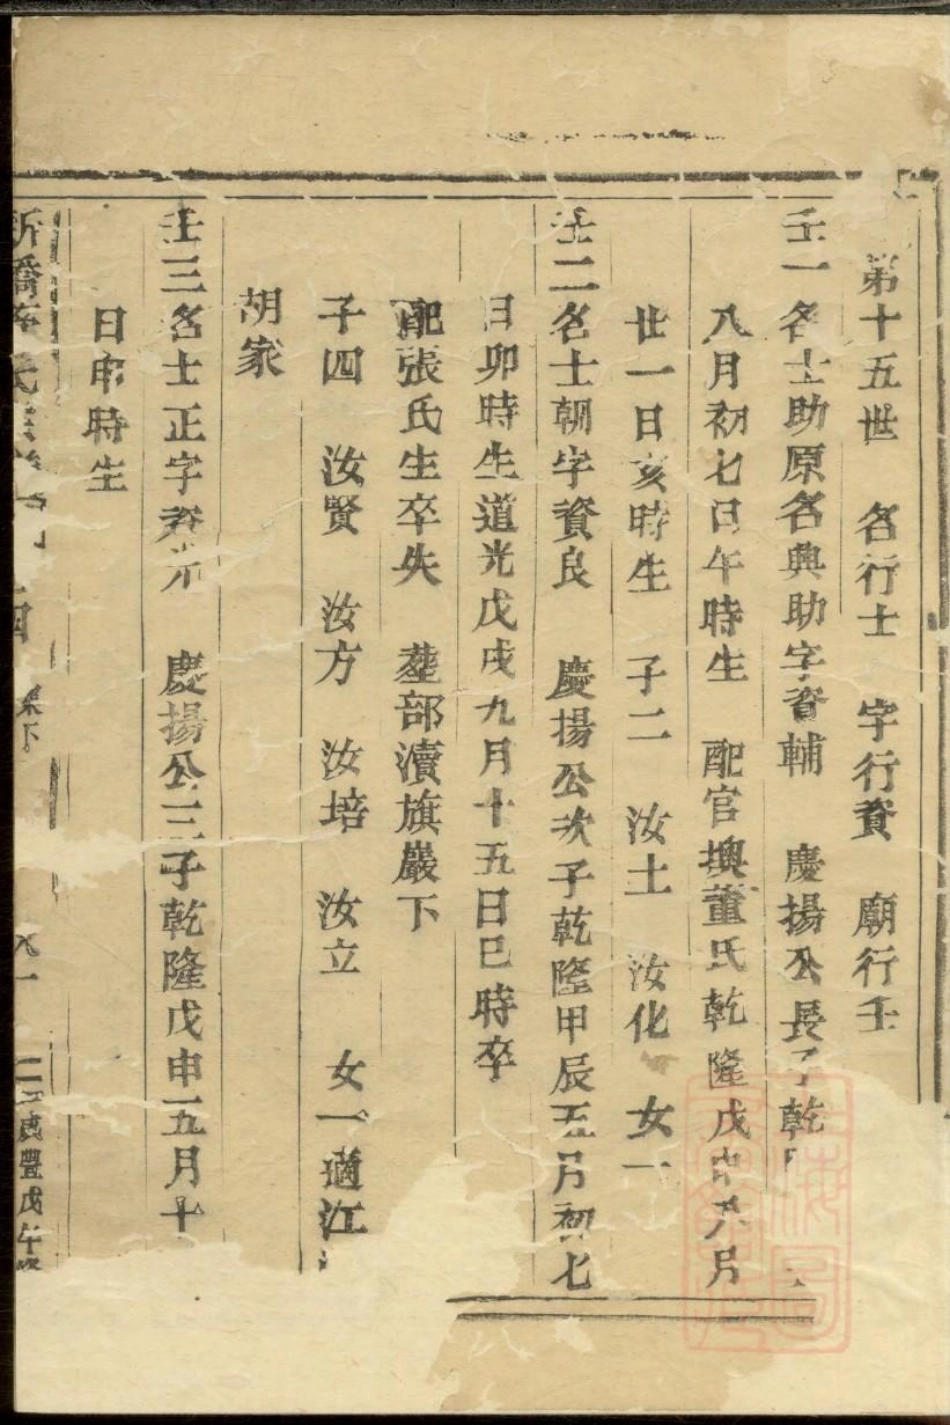 第十五世 名行士 字行資 廟行壬
壬一 名士助原名興助字資輔 慶揚公長子乾
八月初七日午時生 配官墺董氏乾隆戊申六月
廿一日亥時生 子二 汝土 汝化 女一
壬二名士朝字資良 慶揚公次子乾隆甲辰五月初七
日卯時生道光戊戌九月十五日巳時卒
配張氏生卒失 塟部瀆旗巖下
子四 汝賢 汝方 汝培 汝立 女一適江
胡家
壬三名士正字資光 慶揚公三子乾隆戊申五月十
日申時生
新橋 氏 四 下 八一 二 咸豐戊午